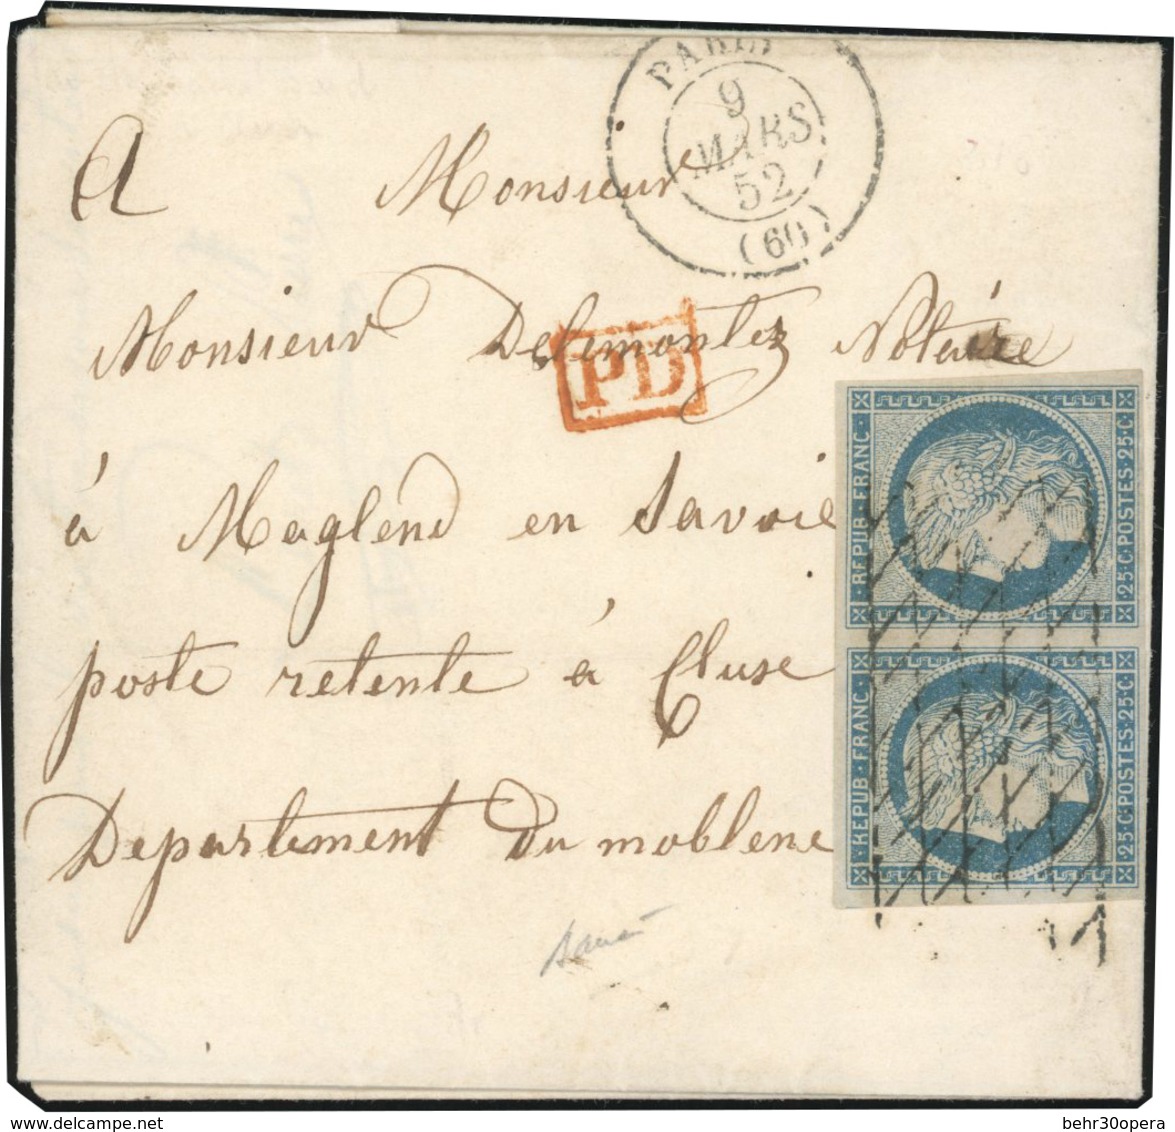 PARIS
9
MARS
52
(60)
A Monsieur
Monsieur Delemontez Notaire
PD
à Maglend en Savoie
poste retente à Cluse
Departement du moblene
REPUB FRANC
25 C POSTES 25 C
REPUB FRANC
25 C POSTES 25 C
behr30opera